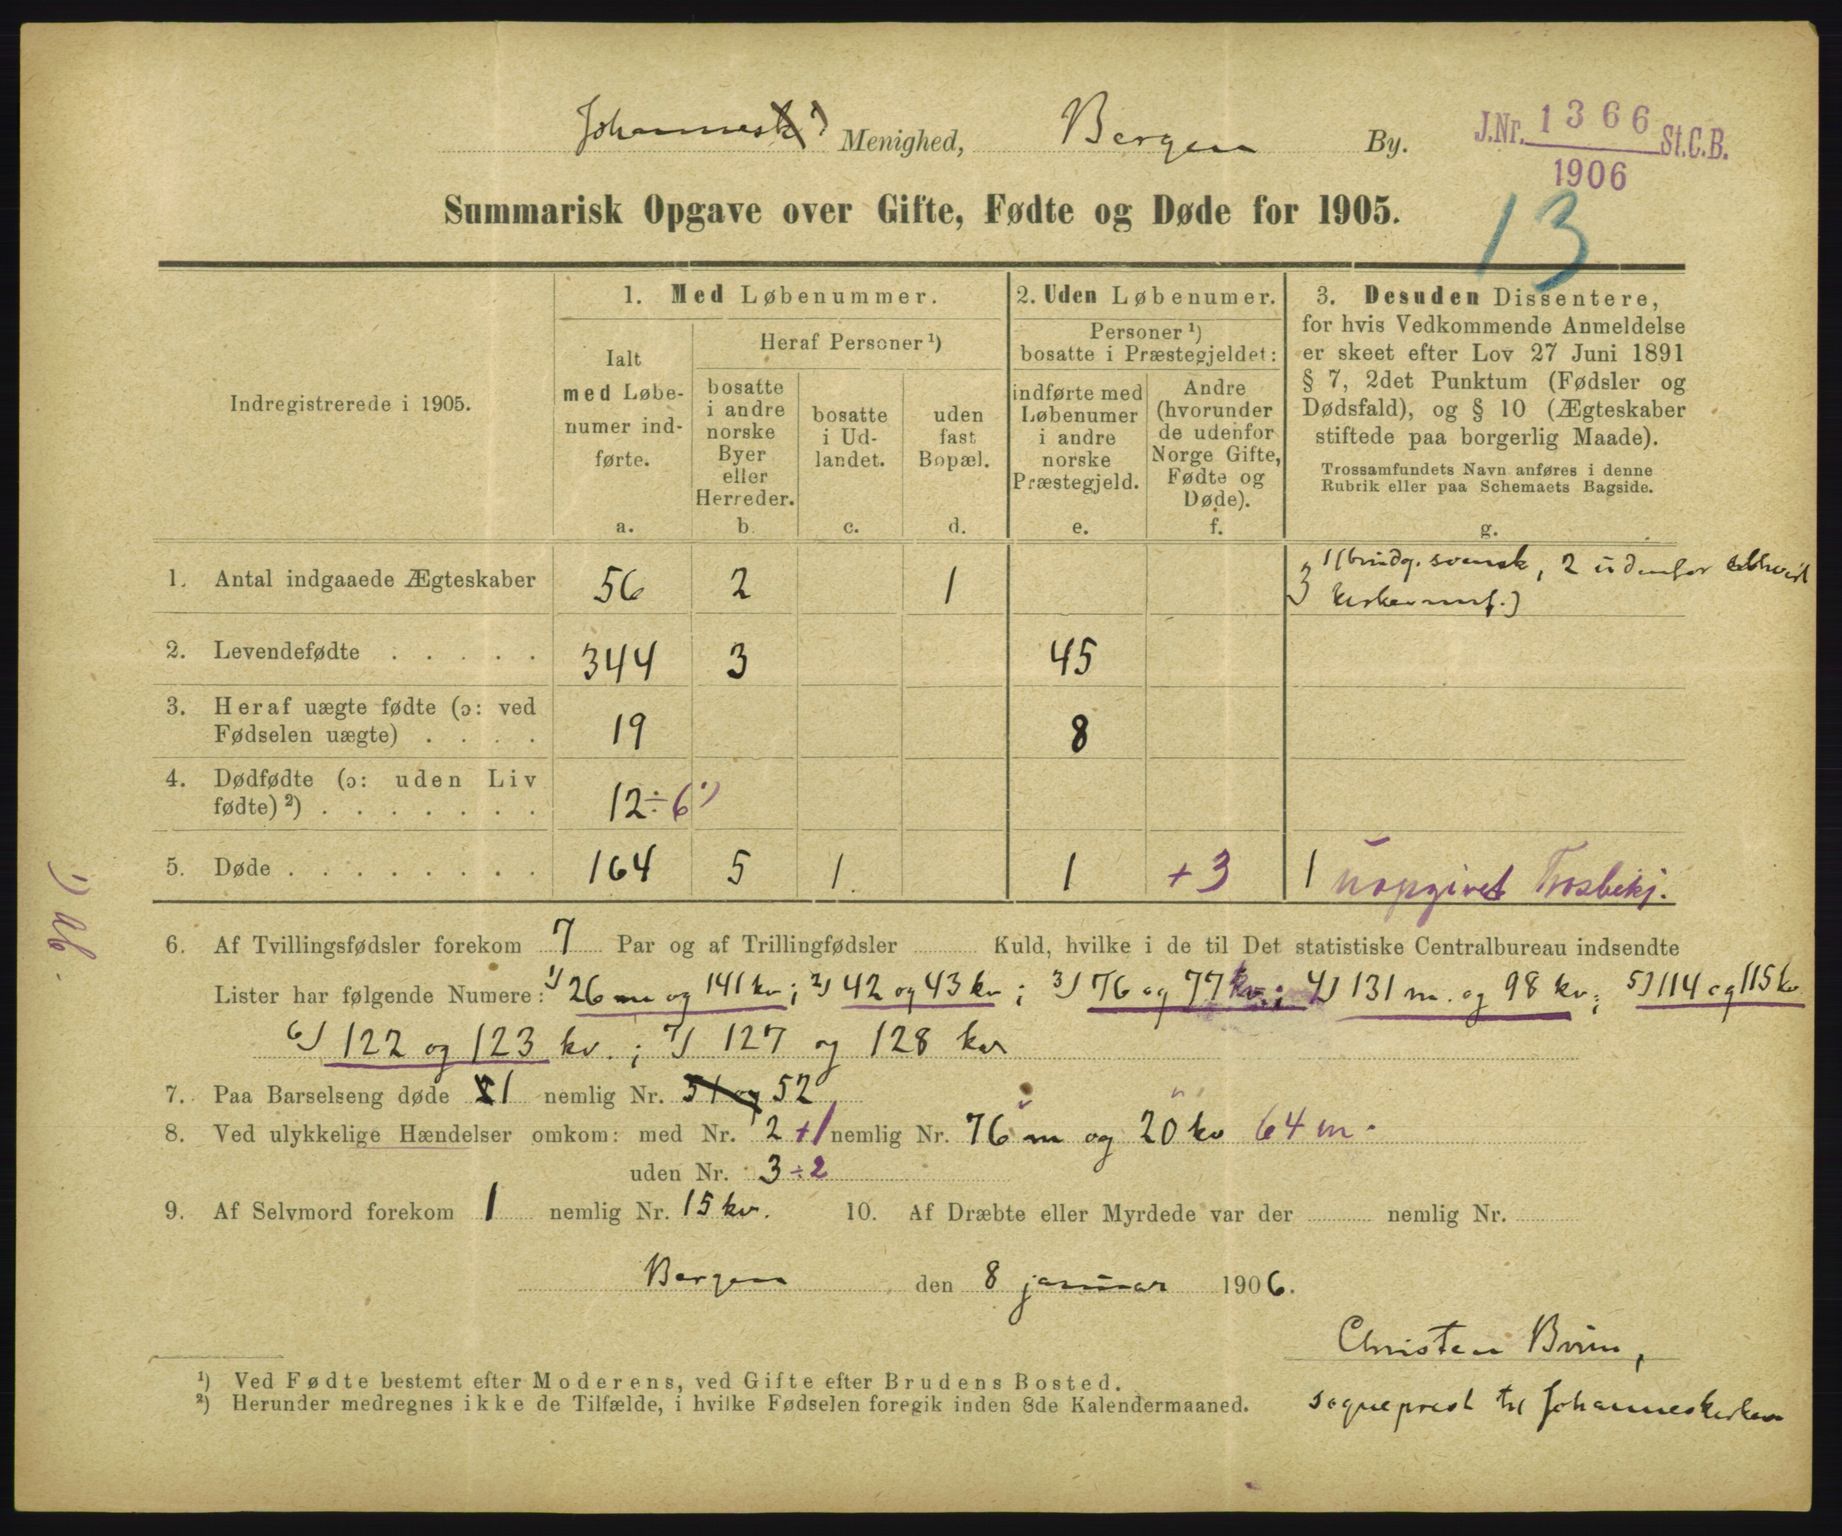 Johannes ¹) Menighed, Bergen By.
J.Nr. 1366 St.C.B.
1906
13
Summarisk Opgave over Gifte, Fødte og Døde for 1905.
Indregistrerede i 1905.
1. Med Løbenummer.
Ialt
med Løbe-
numer ind-
førte.
a.
Heraf Personer ¹)
bosatte
i andre
norske
Byer
eller
Herreder.
b.
bosatte
i Ud-
landet.
c.
uden
fast
Bopæl.
d.
2. Uden Løbenumer.
Personer ¹)
bosatte i Præstegjeldet:
indførte med
Løbenumer
i andre
norske
Præstegjeld.
e.
Andre
(hvorunder
de udenfor
Norge Gifte,
Fødte og
Døde).
f.
3. Desuden Dissentere,
for hvis Vedkommende Anmeldelse
er skeet efter Lov 27 Juni 1891
§ 7, 2det Punktum (Fødsler og
Dødsfald), og § 10 (Ægteskaber
stiftede paa borgerlig Maade).
Trossamfundets Navn anføres i denne
Rubrik eller paa Schemaets Bagside.
g.
1. Antal indgaaede Ægteskaber 56 2 1 3 1 (brudg. svensk, 2 udenfor
kirkesamf.)
2. Levendefødte . . . . . 344 3 45
3. Heraf uægte fødte (ɔ: ved
Fødselen uægte) . . . . 19 8
4. Dødfødte (ɔ: uden Liv
fødte) ²) . . . . . . . 12 ÷ 6 ¹)
5. Døde . . . . . . . . 164 5 1. 1 + 3 1 uopgivet Trosbekj.
¹) Ab.
6. Af Tvillingsfødsler forekom 7 Par og af Trillingfødsler Kuld, hvilke i de til Det statistiske Centralbureau indsendte
Lister har følgende Numere: ¹) 26 m og 141 kv; ²) 42 og 43 kv; ³) 76 og 77 kv.; 4) 131 m. og 98 kv.; 5) 114 og 115 kv.
6) 122 og 123 kv.; 7) 127 og 128 kv
7. Paa Barselseng døde 1 nemlig Nr. 51 og 52
8. Ved ulykkelige Hændelser omkom: med Nr. 2 +1 nemlig Nr. 76 m og 20 kv 64 m.
uden Nr. 3 ÷ 2
9. Af Selvmord forekom 1 nemlig Nr. 15 kv. 10. Af Dræbte eller Myrdede var der nemlig Nr.
Bergen den 8 januar 1906.
Christen Brun,
sogneprest til Johanneskirken
¹) Ved Fødte bestemt efter Moderens, ved Gifte efter Brudens Bosted.
²) Herunder medregnes ikke de Tilfælde, i hvilke Fødselen foregik inden 8de Kalendermaaned.